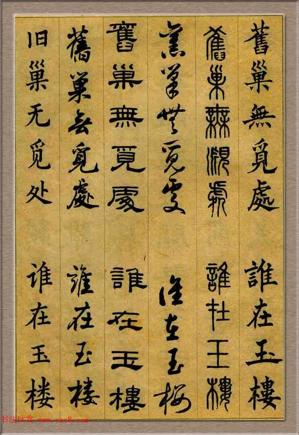 舊巢無覓處 誰在玉樓
舊巢無覓處 誰在玉樓
舊巢無覓處 誰在玉樓
舊巢無覓處 誰在玉樓
舊巢無覓處 誰在玉樓
旧巢无觅处 谁在玉楼